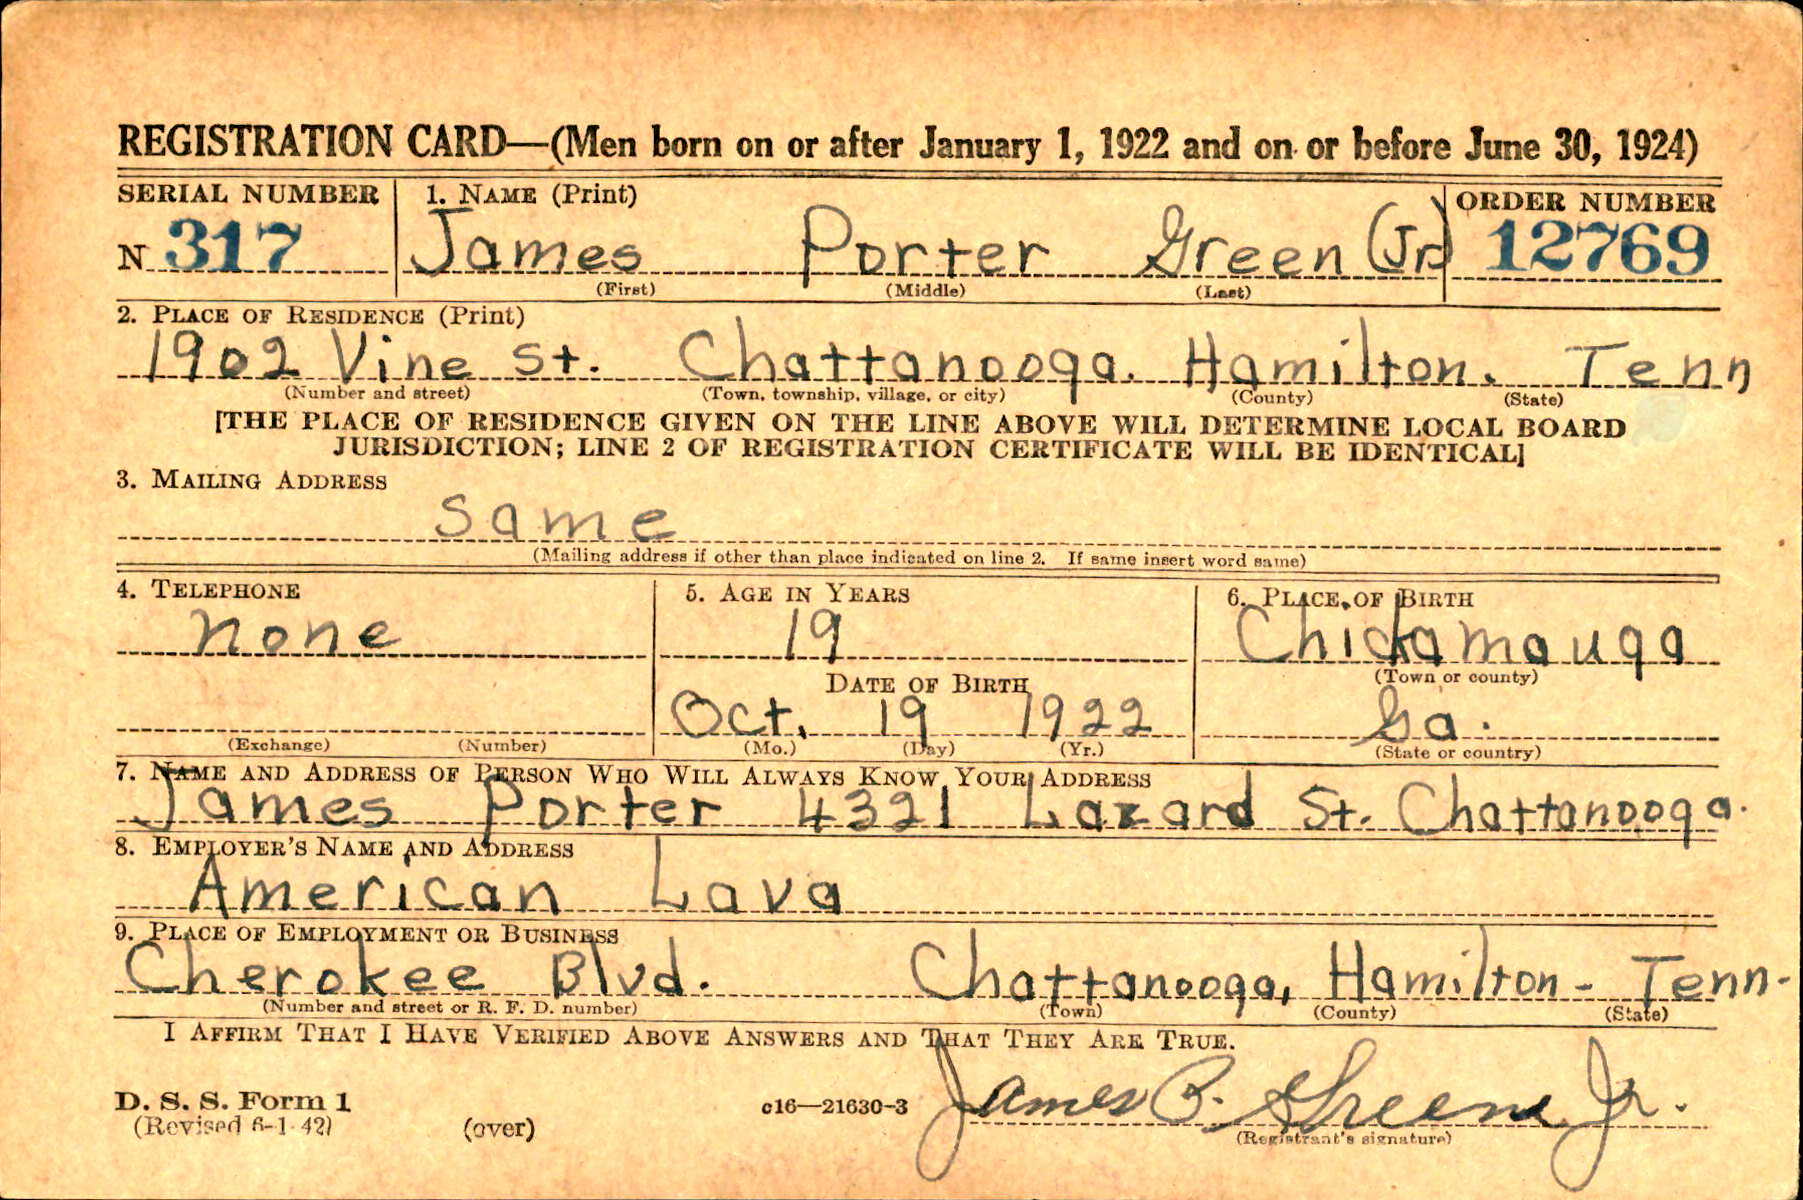 REGISTRATION CARD—(Men born on or after January 1, 1922 and on or before June 30, 1924)
SERIAL NUMBER 1. NAME (Print) ORDER NUMBER
N 317 James Porter Green (Jr) 12769
(First) (Middle) (Last)
2. PLACE OF RESIDENCE (Print)
1902 Vine St. Chattanooga. Hamilton. Tenn
(Number and street) (Town, township, village, or city) (County) (State)
[THE PLACE OF RESIDENCE GIVEN ON THE LINE ABOVE WILL DETERMINE LOCAL BOARD
JURISDICTION; LINE 2 OF REGISTRATION CERTIFICATE WILL BE IDENTICAL]
3. MAILING ADDRESS
Same
(Mailing address if other than place indicated on line 2. If same insert word same)
4. TELEPHONE 5. AGE IN YEARS 6. PLACE OF BIRTH
None 19 Chickamauga
(Town or county)
DATE OF BIRTH
Oct. 19 1922 Ga.
(Exchange) (Number) (Mo.) (Day) (Yr.) (State or country)
7. NAME AND ADDRESS OF PERSON WHO WILL ALWAYS KNOW YOUR ADDRESS
James Porter 4321 Lazard St. Chattanooga.
8. EMPLOYER'S NAME AND ADDRESS
American Lava
9. PLACE OF EMPLOYMENT OR BUSINESS
Cherokee Blvd. Chattanooga, Hamilton - Tenn-
(Number and street or R. F. D. number) (Town) (County) (State)
I AFFIRM THAT I HAVE VERIFIED ABOVE ANSWERS AND THAT THEY ARE TRUE.
D. S. S. Form 1 c16—21630-3 James P. Greene Jr.
(Revised 6-1-42) (over) (Registrant's signature)